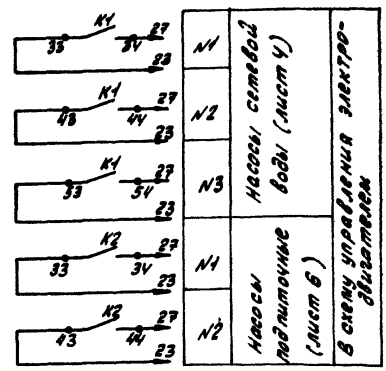 К1
33 34 27
23
N1
К1
43 44 27
23
N2
К1
53 54 27
23
N3
К2
33 34 27
23
N1
К2
43 44 27
23
N2
Насосы сетевой
воды (лист 4)
Насосы
подпиточные
(лист 6)
В схему управления электро-
двигателем